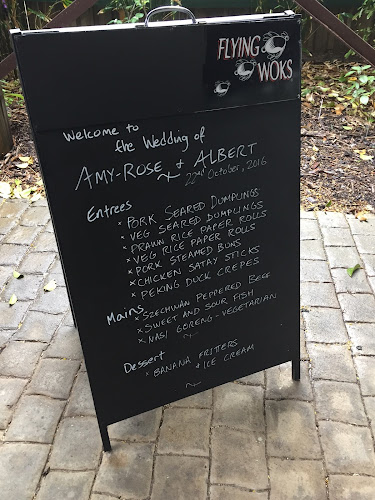 FLYING
WOKS
Welcome to
the Wedding of
AMY-ROSE & ALBERT
22nd October, 2016
Entrees
* PORK SEARED DUMPLINGS
* VEG SEARED DUMPLINGS
* PRAWN RICE PAPER ROLLS
* VEG RICE PAPER ROLLS
* PORK STEAMED BUNS
* CHICKEN SATAY STICKS
* PEKING DUCK CREPES
Mains
* SZECHWAN PEPPERED BEEF
* SWEET AND SOUR FISH
* NASI GORENG - VEGETARIAN
Dessert
* BANANA FRITERS
* ICE CREAM